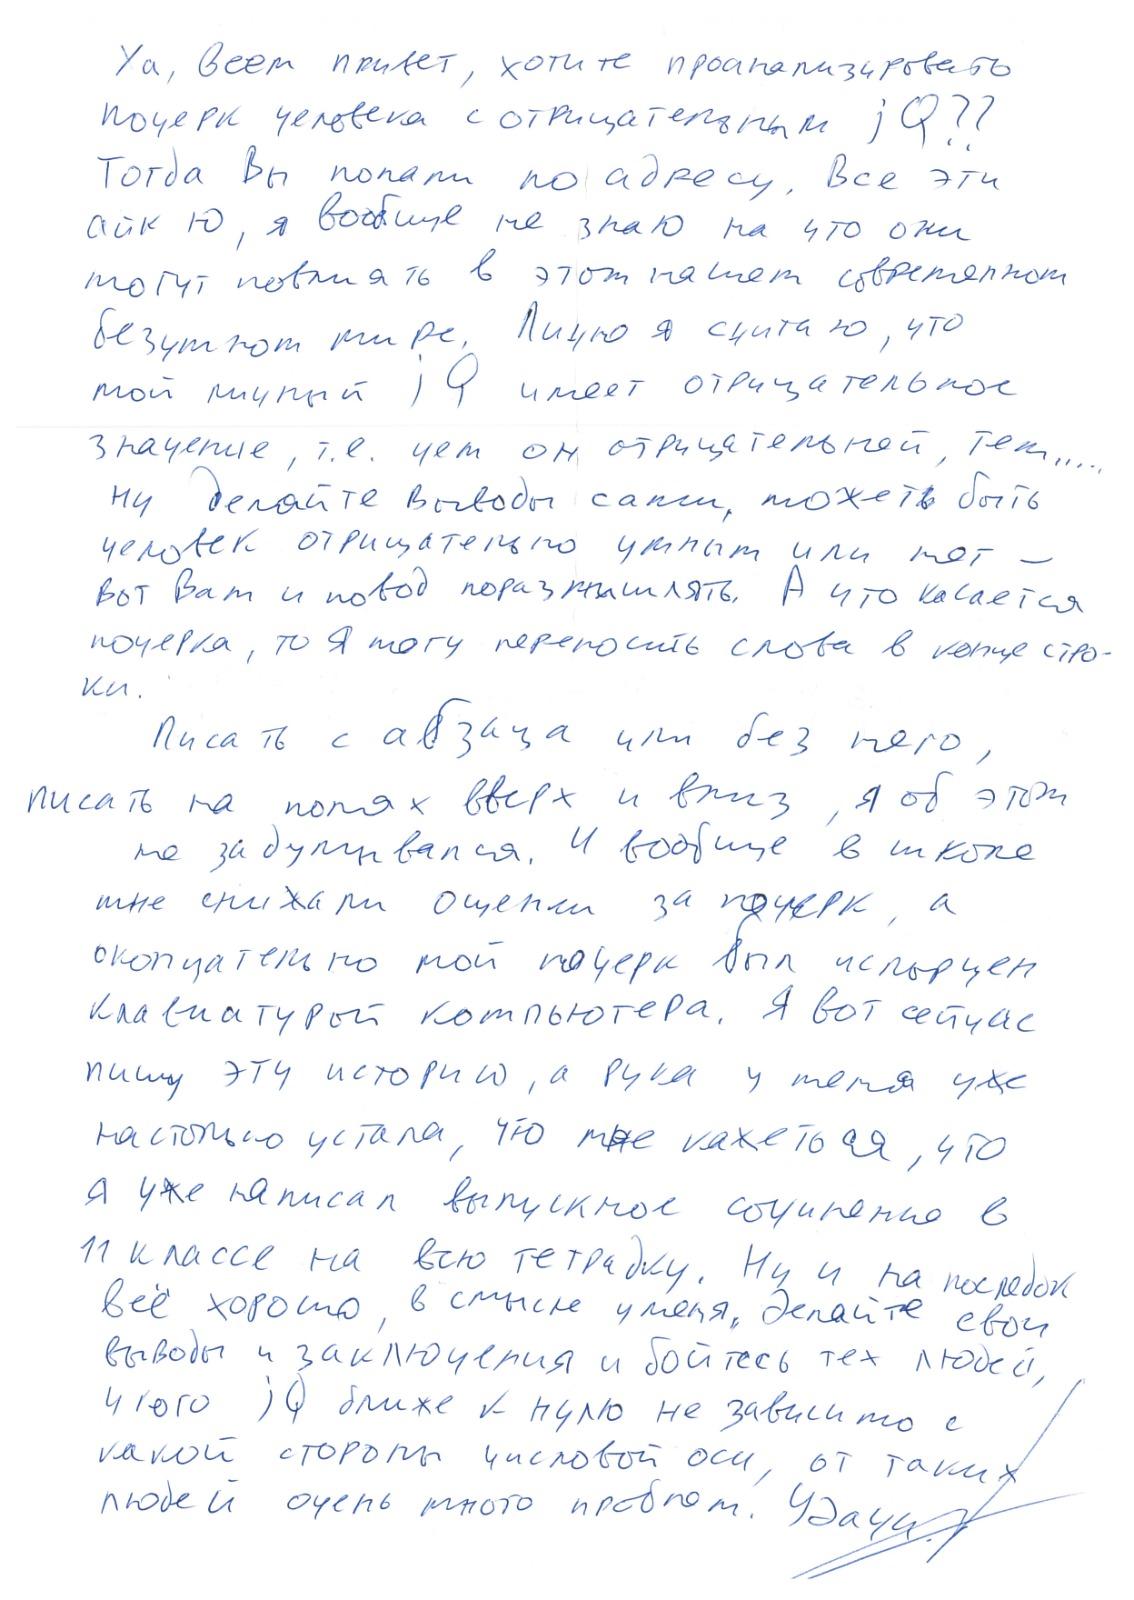 Ха, всем привет, хотите проанализировать
почерк человека с отрицательным jQ??
Тогда Вы попали по адресу. Все эти
айк Ю, я вообще не знаю на что они
могут повлиять в этом нашем современном
безумном мире. Лично я считаю, что
мой личный jQ имеет отрицательное
значение, т.е. чем он отрицательней, тем.....
ну делайте выводы сами, может быть
человек отрицательно умным или нет –
вот Вам и повод поразмышлять. А что касается
почерка, то Я могу переносить слова в конце стро-
ки.
Писать с абзаца или без него,
писать на полях вверх и вниз, я об этом
не задумывался. И вообще в школе
мне снижали оценки за почерк, а
окончательно мой почерк был испорчен
клавиатурой компьютера. Я вот сейчас
пишу эту историю, а рука у меня уже
настолько устала, что мне кажеться, что
я уже написал выпускное сочинение в
11 классе на всю тетрадку. Ну и на последок
всё хорошо, в смысле у меня, делайте свои
выводы и заключения и бойтесь тех людей,
у кого jQ ближе к нулю не зависимо с
какой стороны числовой оси, от таких
людей очень много проблем. Удачи.